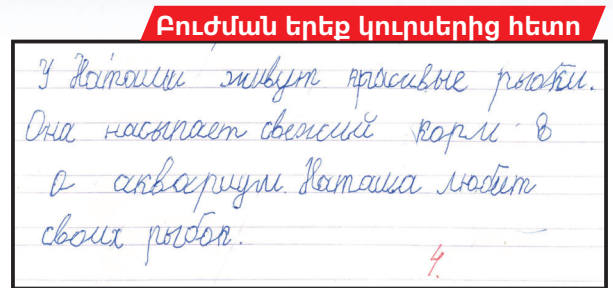 Բուժման երեք կուրսերից հետո
У Наташи живут красивые рыбки.
Она насыпает свежий корм в
о аквариум. Наташа любит
своих рыбок.
4.